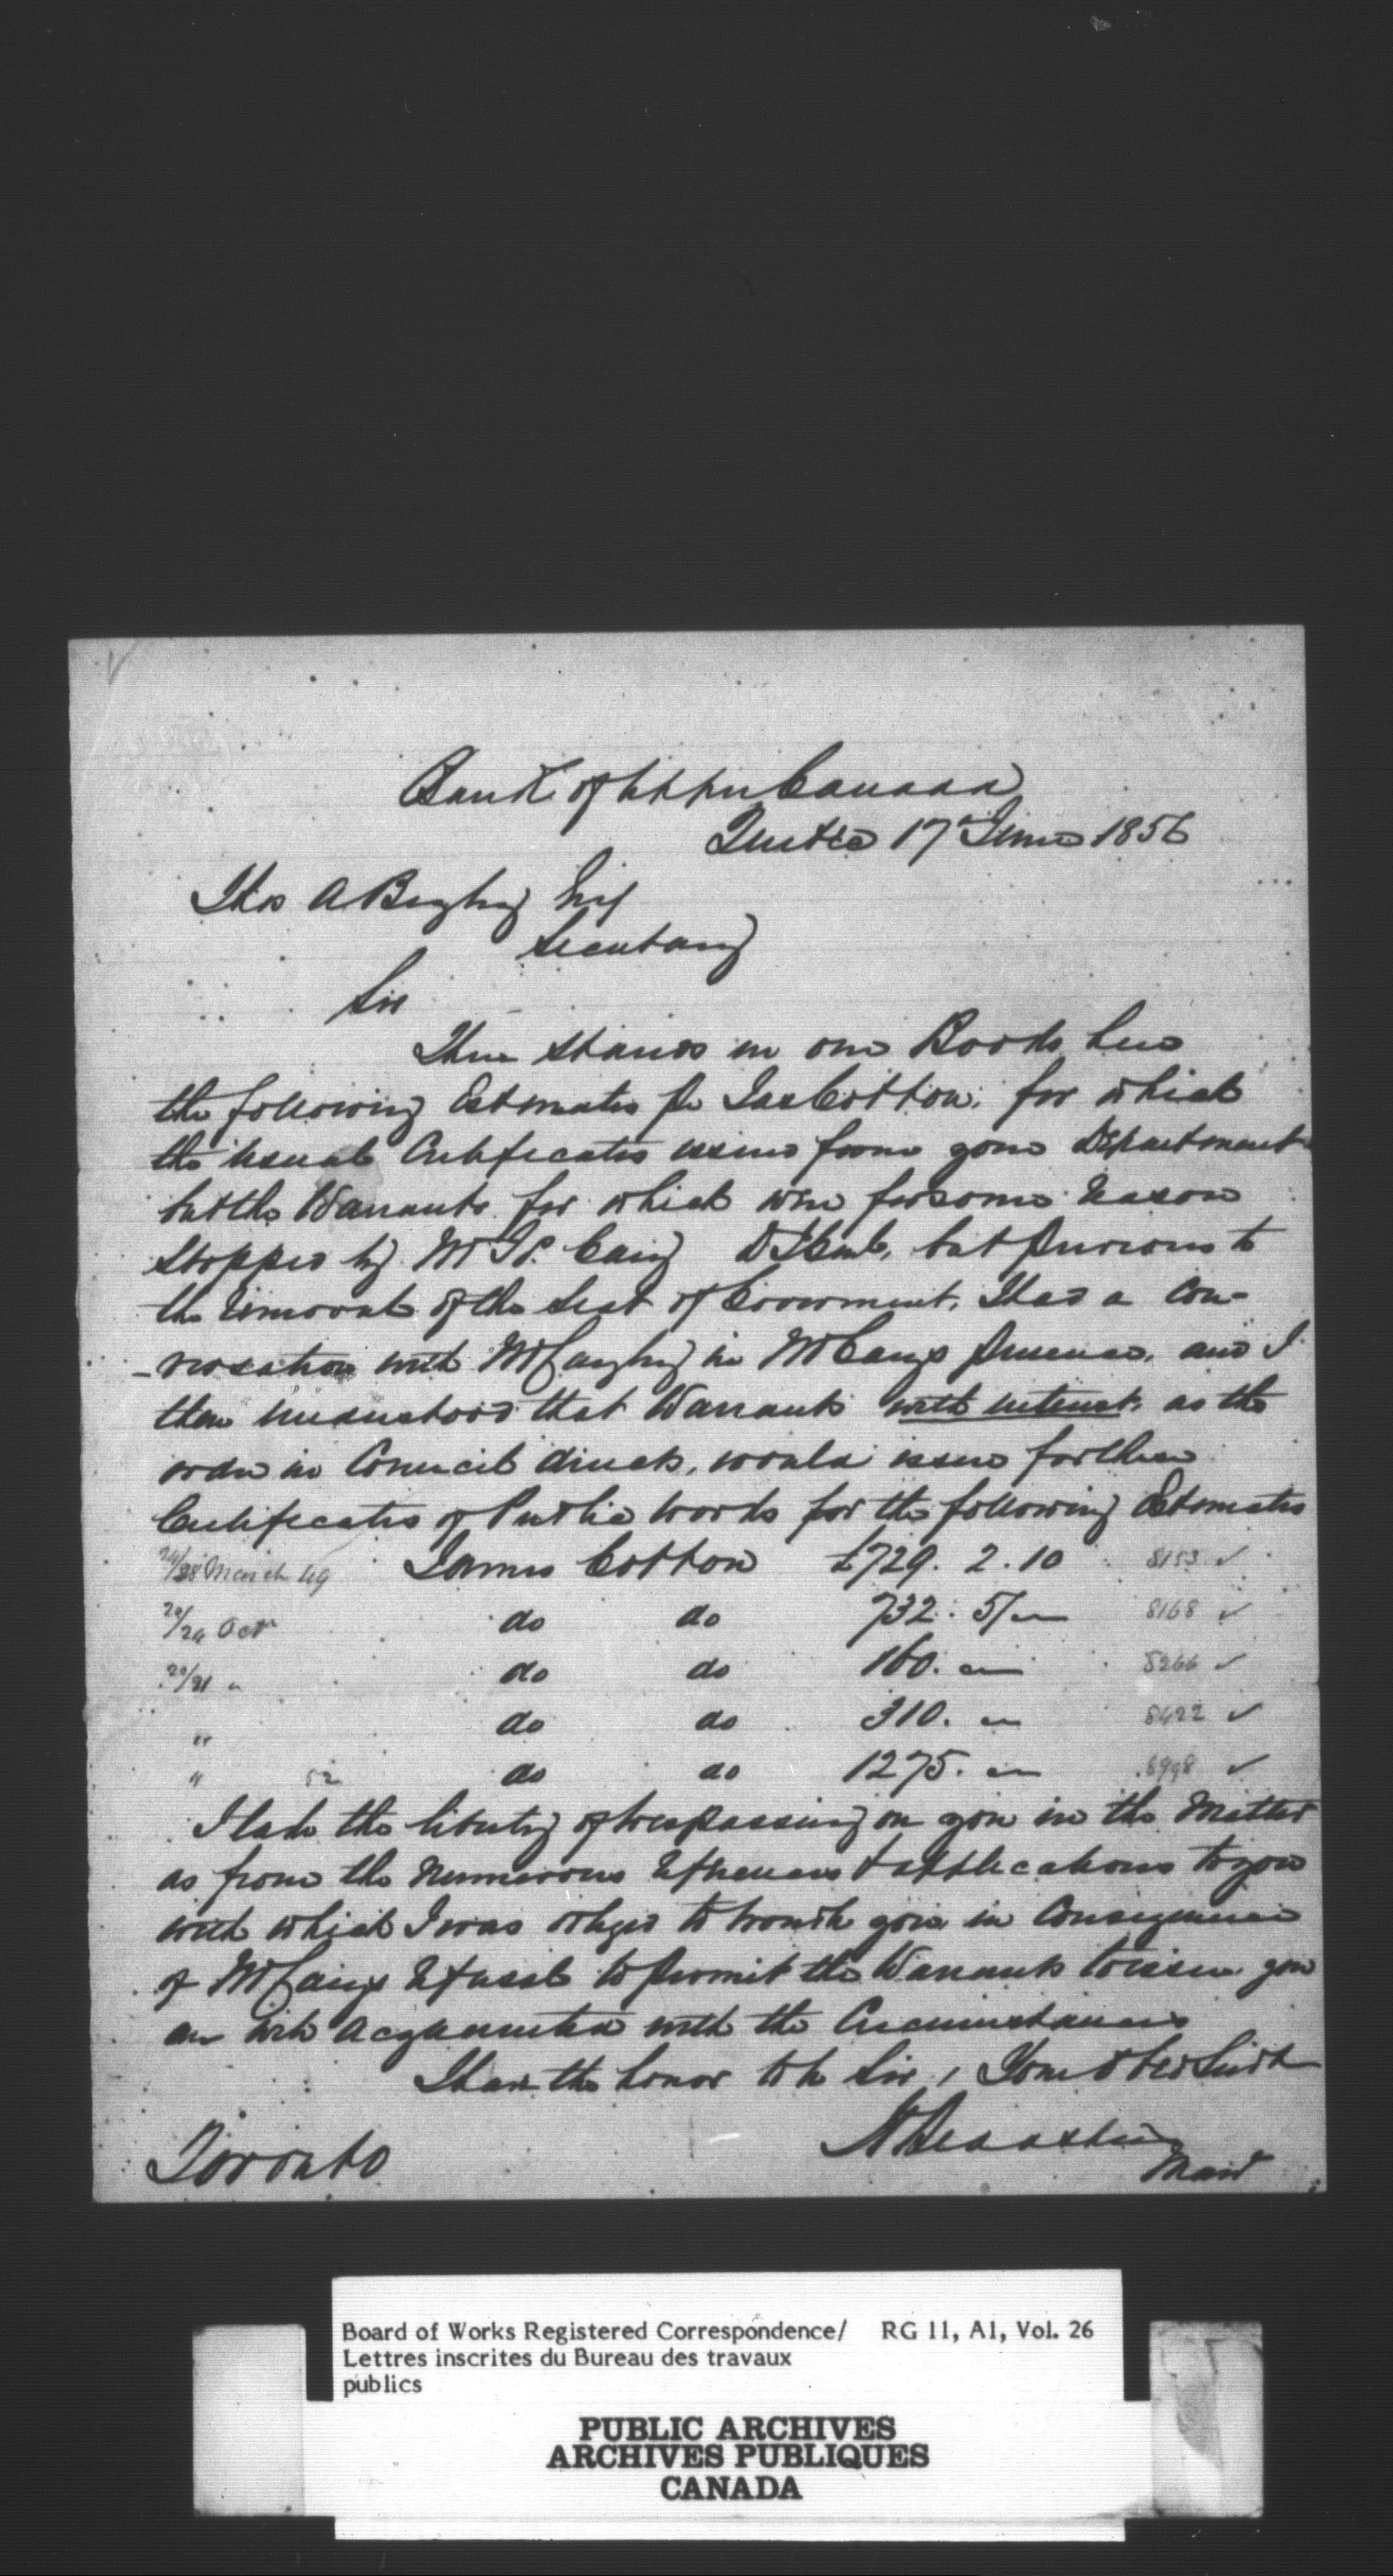 Bank of Upper Canada
Quebec 17 June 1856
Thos A Begley Esq
Secretary
Sir
There stands in our Books here
the following Estimates for Jas Cotton, for which
the usual Certificates issued from your Department
but the Warrants for which were for some reason
stopped by Mr Cary but previous to
the removal of the Seat of Government, I had a Con-
-versation with Mr Cayley in Mr Carys presence, and I
then understood that Warrants with interest, as the
order in Council directs, would issue for these
Certificates of Public Works for the following Estimates
24/28 March 49 James Cotton £729. 2. 10 8153 ✓
20/24 Oct do do 732. 5/ 8168 ✓
20/21 " do do 160. 8266 ✓
" do do 310. 8422 ✓
" 52 do do 1275. 8998 ✓
I take the liberty of trespassing on you in the Matter
as from the numerous references & applications to you
with which I was obliged to trouble you in Consequence
of Mr Carys refusal to permit the Warrants to issue you
are well acquainted with the Circumstances
I have the honor to be Sir, Your Obed Servt
Toronto
Board of Works Registered Correspondence/ RG 11, A1, Vol. 26
Lettres inscrites du Bureau des travaux
publics
PUBLIC ARCHIVES
ARCHIVES PUBLIQUES
CANADA